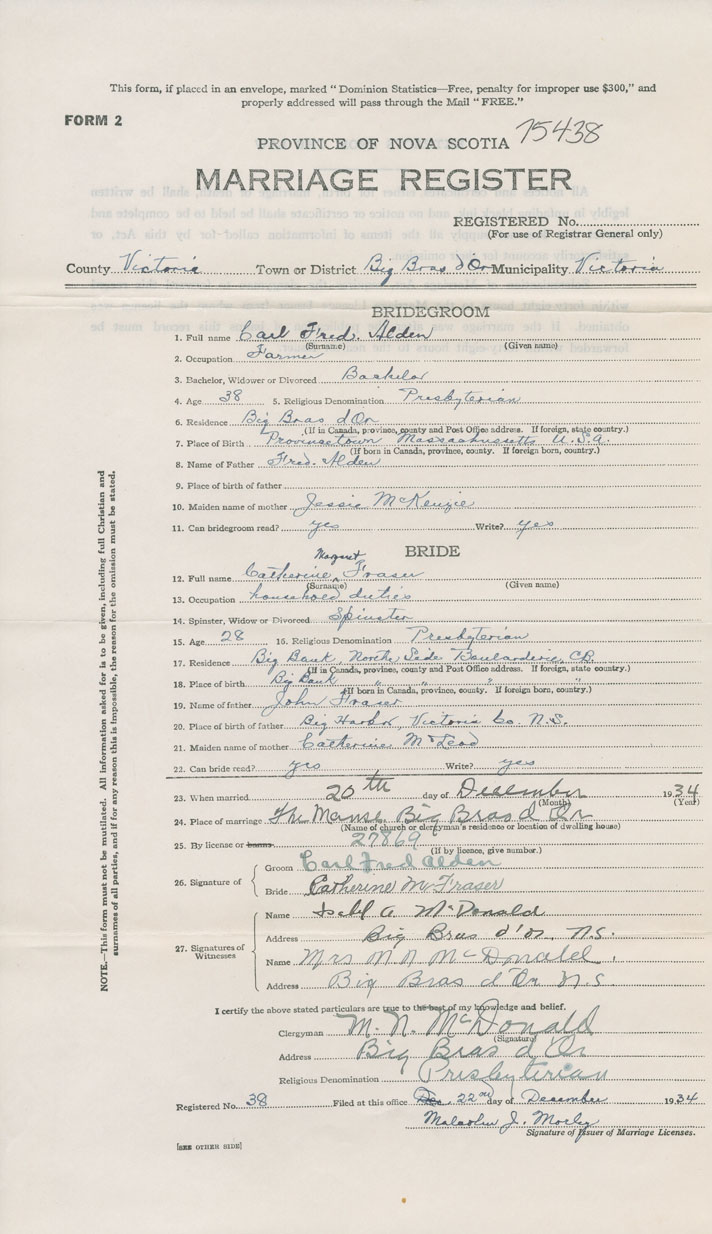 This form, if placed in an envelope, marked "Dominion Statistics—Free, penalty for improper use $300," and
properly addressed will pass through the Mail "FREE."
FORM 2
75438
PROVINCE OF NOVA SCOTIA
MARRIAGE REGISTER
REGISTERED No.
(For use of Registrar General only)
County Victoria Town or District Big Bras d'Or Municipality Victoria
BRIDEGROOM
1. Full name Carl Fred. Alden
(Surname) (Given name)
2. Occupation Farmer
3. Bachelor, Widower or Divorced Bachelor
4. Age 38 5. Religious Denomination Presbyterian
6. Residence Big Bras d'Or
(If in Canada, province, county and Post Office address. If foreign, state country.)
7. Place of Birth Provincetown Massachussetts U.S.A.
(If born in Canada, province, county. If foreign born, country.)
8. Name of Father Fred. Alden
9. Place of birth of father
10. Maiden name of mother Jessie McKenzie
11. Can bridegroom read? yes Write? yes
BRIDE
Margaret
12. Full name Catherine Fraser
(Surname) (Given name)
13. Occupation household duties
14. Spinster, Widow or Divorced Spinster
15. Age 28 16. Religious Denomination Presbyterian
17. Residence Big Bank, North Side Boularderie, C.B.
(If in Canada, province, county and Post Office address. If foreign, state country.)
18. Place of birth Big Bank " " "
(If born in Canada, province, county. If foreign born, country.)
19. Name of father John Fraser
20. Place of birth of father Big Harbor, Victoria Co. N.S.
21. Maiden name of mother Catherine McLeod
22. Can bride read? yes Write? yes
23. When married 20th day of December 1934
(Month) (Year)
24. Place of marriage The Manse, Big Bras d'Or
(Name of church or clergyman's residence or location of dwelling house)
25. By license or banns 27869
(If by licence, give number.)
26. Signature of
Groom Carl Fred Alden
Bride Catherine M. Fraser
27. Signatures of Witnesses
Name A. McDonald
Address Big Bras d'Or, N.S.
Name Mrs M N McDonald
Address Big Bras d'Or N.S.
I certify the above stated particulars are true to the best of my knowledge and belief.
Clergyman M. N. McDonald
(Signature)
Address Big Bras d'Or
Religious Denomination Presbyterian
Registered No. 38 Filed at this office Dec 22nd day of December 1934
Malcolm J.
Signature of Issuer of Marriage Licenses.
[SEE OTHER SIDE]
NOTE.—This form must not be mutilated. All information asked for is to be given, including full Christian and
surnames of all parties, and if for any reason this is impossible, the reason for the omission must be stated.